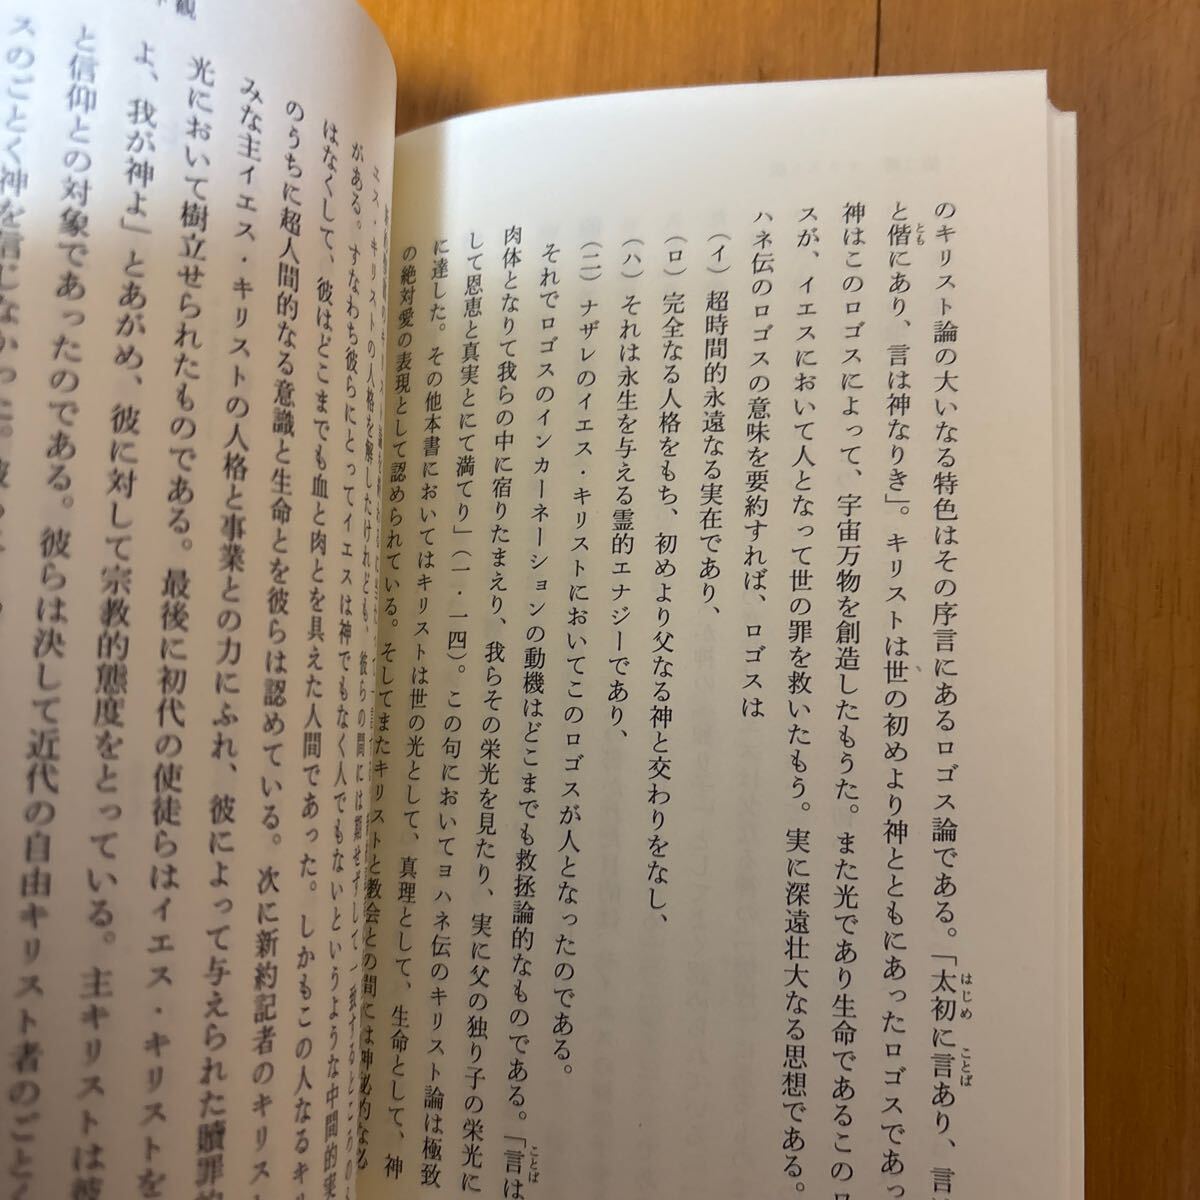 のキリスト論の大いなる特色はその序言にあるロゴス論である。「太初に言あり、言
と偕にあり、言は神なりき」。キリストは世の初めより神とともにあったロゴスであっ
神はこのロゴスによって、宇宙万物を創造したもうた。また光であり生命であるこのロ
スが、イエスにおいて人となって世の罪を救いたもう。実に深遠壮大なる思想である。
ハネ伝のロゴスの意味を要約すれば、ロゴスは
（イ）超時間的永遠なる実在であり、
（ロ）完全なる人格をもち、初めより父なる神と交わりをなし、
（ハ）それは永生を与える霊的エナジーであり、
（ニ）ナザレのイエス・キリストにおいてこのロゴスが人となったのである。
それでロゴスのインカーネーションの動機はどこまでも救拯論的なものである。「言は
肉体となりて我らの中に宿りたまえり、我らその栄光を見たり、実に父の独り子の栄光に
して恩恵と真実とにて満てり」（一・一四）。この句においてヨハネ伝のキリスト論は極致
に達した。その他本書においてはキリストは世の光として、真理として、生命として、神
の絶対愛の表現として認められている。そしてまたキリストと教会との間には神秘的なる
エス・キリストの人格を解したけれども、彼らの間には期せずして一致するところの
がある。すなわち彼らにとってイエスは神でもなく人でもないというような中間的実
はなくして、彼はどこまでも血と肉とを具えた人間であった。しかもこの人なるキリ
のうちに超人間的なる意識と生命とを彼らは認めている。次に新約記者のキリス
みな主イエス・キリストの人格と事業との力にふれ、彼によって与えられた贖罪的
光において樹立せられたものである。最後に初代の使徒らはイエス・キリストを
よ、我が神よ」とあがめ、彼に対して宗教的態度をとっている。主キリストは彼
と信仰との対象であったのである。彼らは決して近代の自由キリスト者のごとく
スのごとく神を信じなかった。
観